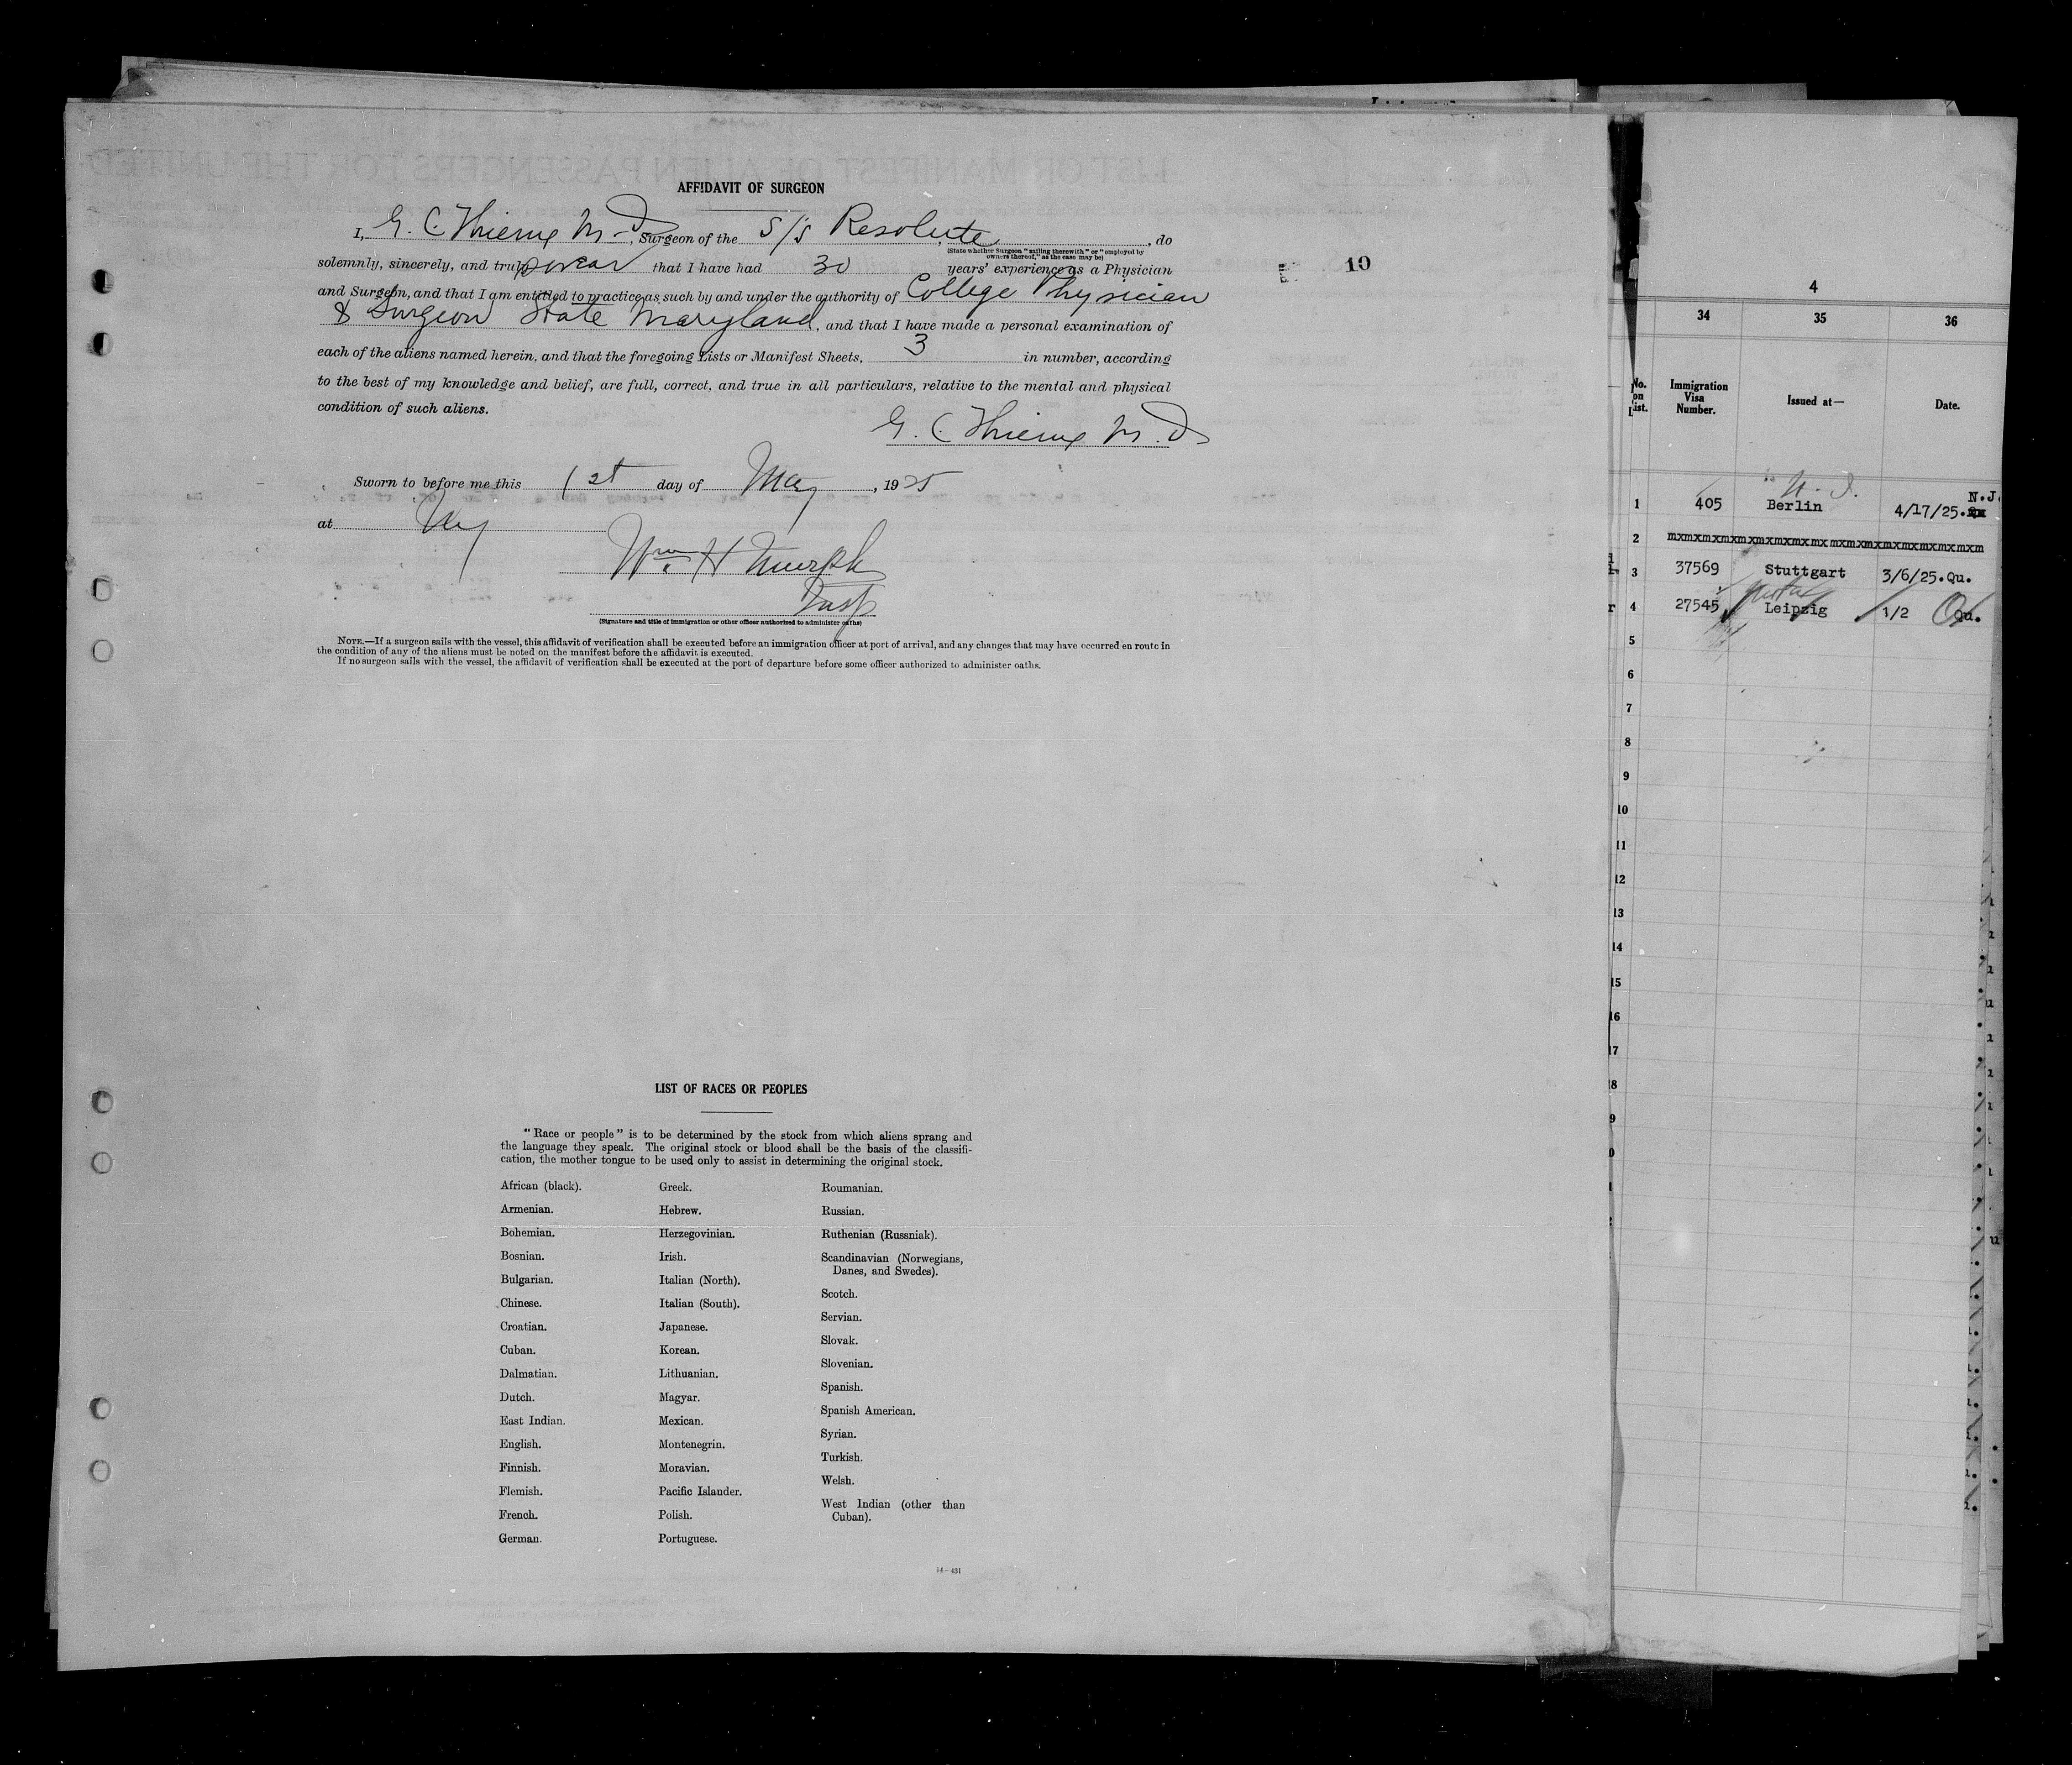 AFFIDAVIT OF SURGEON
I, G. C. Thieme M.D., Surgeon of the S/S Resolute, do
(State whether Surgeon "sailing therewith" or "employed by
owners thereof," as the case may be)
solemnly, sincerely, and truly swear that I have had 30 years' experience as a Physician
and Surgeon, and that I am entitled to practice as such by and under the authority of College Physician
& Surgeon State Maryland, and that I have made a personal examination of
each of the aliens named herein, and that the foregoing Lists or Manifest Sheets, 3 in number, according
to the best of my knowledge and belief, are full, correct, and true in all particulars, relative to the mental and physical
condition of such aliens.
G. C. Thieme M.D.
Sworn to before me this 1st day of May, 1925
at NY
Wm. H Murph
Insp
(Signature and title of immigration or other officer authorized to administer oaths)
NOTE.—If a surgeon sails with the vessel, this affidavit of verification shall be executed before an immigration officer at port of arrival, and any changes that may have occurred en route in
the condition of any of the aliens must be noted on the manifest before the affidavit is executed.
If no surgeon sails with the vessel, the affidavit of verification shall be executed at the port of departure before some officer authorized to administer oaths.
LIST OF RACES OR PEOPLES
"Race or people" is to be determined by the stock from which aliens sprang and
the language they speak. The original stock or blood shall be the basis of the classifi-
cation, the mother tongue to be used only to assist in determining the original stock.
African (black).
Armenian.
Bohemian.
Bosnian.
Bulgarian.
Chinese.
Croatian.
Cuban.
Dalmatian.
Dutch.
East Indian.
English.
Finnish.
Flemish.
French.
German.
Greek.
Hebrew.
Herzegovinian.
Irish.
Italian (North).
Italian (South).
Japanese.
Korean.
Lithuanian.
Magyar.
Mexican.
Montenegrin.
Moravian.
Pacific Islander.
Polish.
Portuguese.
Roumanian.
Russian.
Ruthenian (Russniak).
Scandinavian (Norwegians,
Danes, and Swedes).
Scotch.
Servian.
Slovak.
Slovenian.
Spanish.
Spanish American.
Syrian.
Turkish.
Welsh.
West Indian (other than
Cuban).
14—431
10
4
34 35 36
No. on List. Immigration Visa Number. Issued at— Date.
N.J.
1 405 Berlin 4/17/25.
2 mxmxmxmxmxmxmxmxmxmxmxmxmxmxmxmxmxm
3 37569 Stuttgart 3/6/25.Qu.
4 27545 Leipzig 1/2 Qu.
5
6
7
8
9
10
11
12
13
14
15
16
17